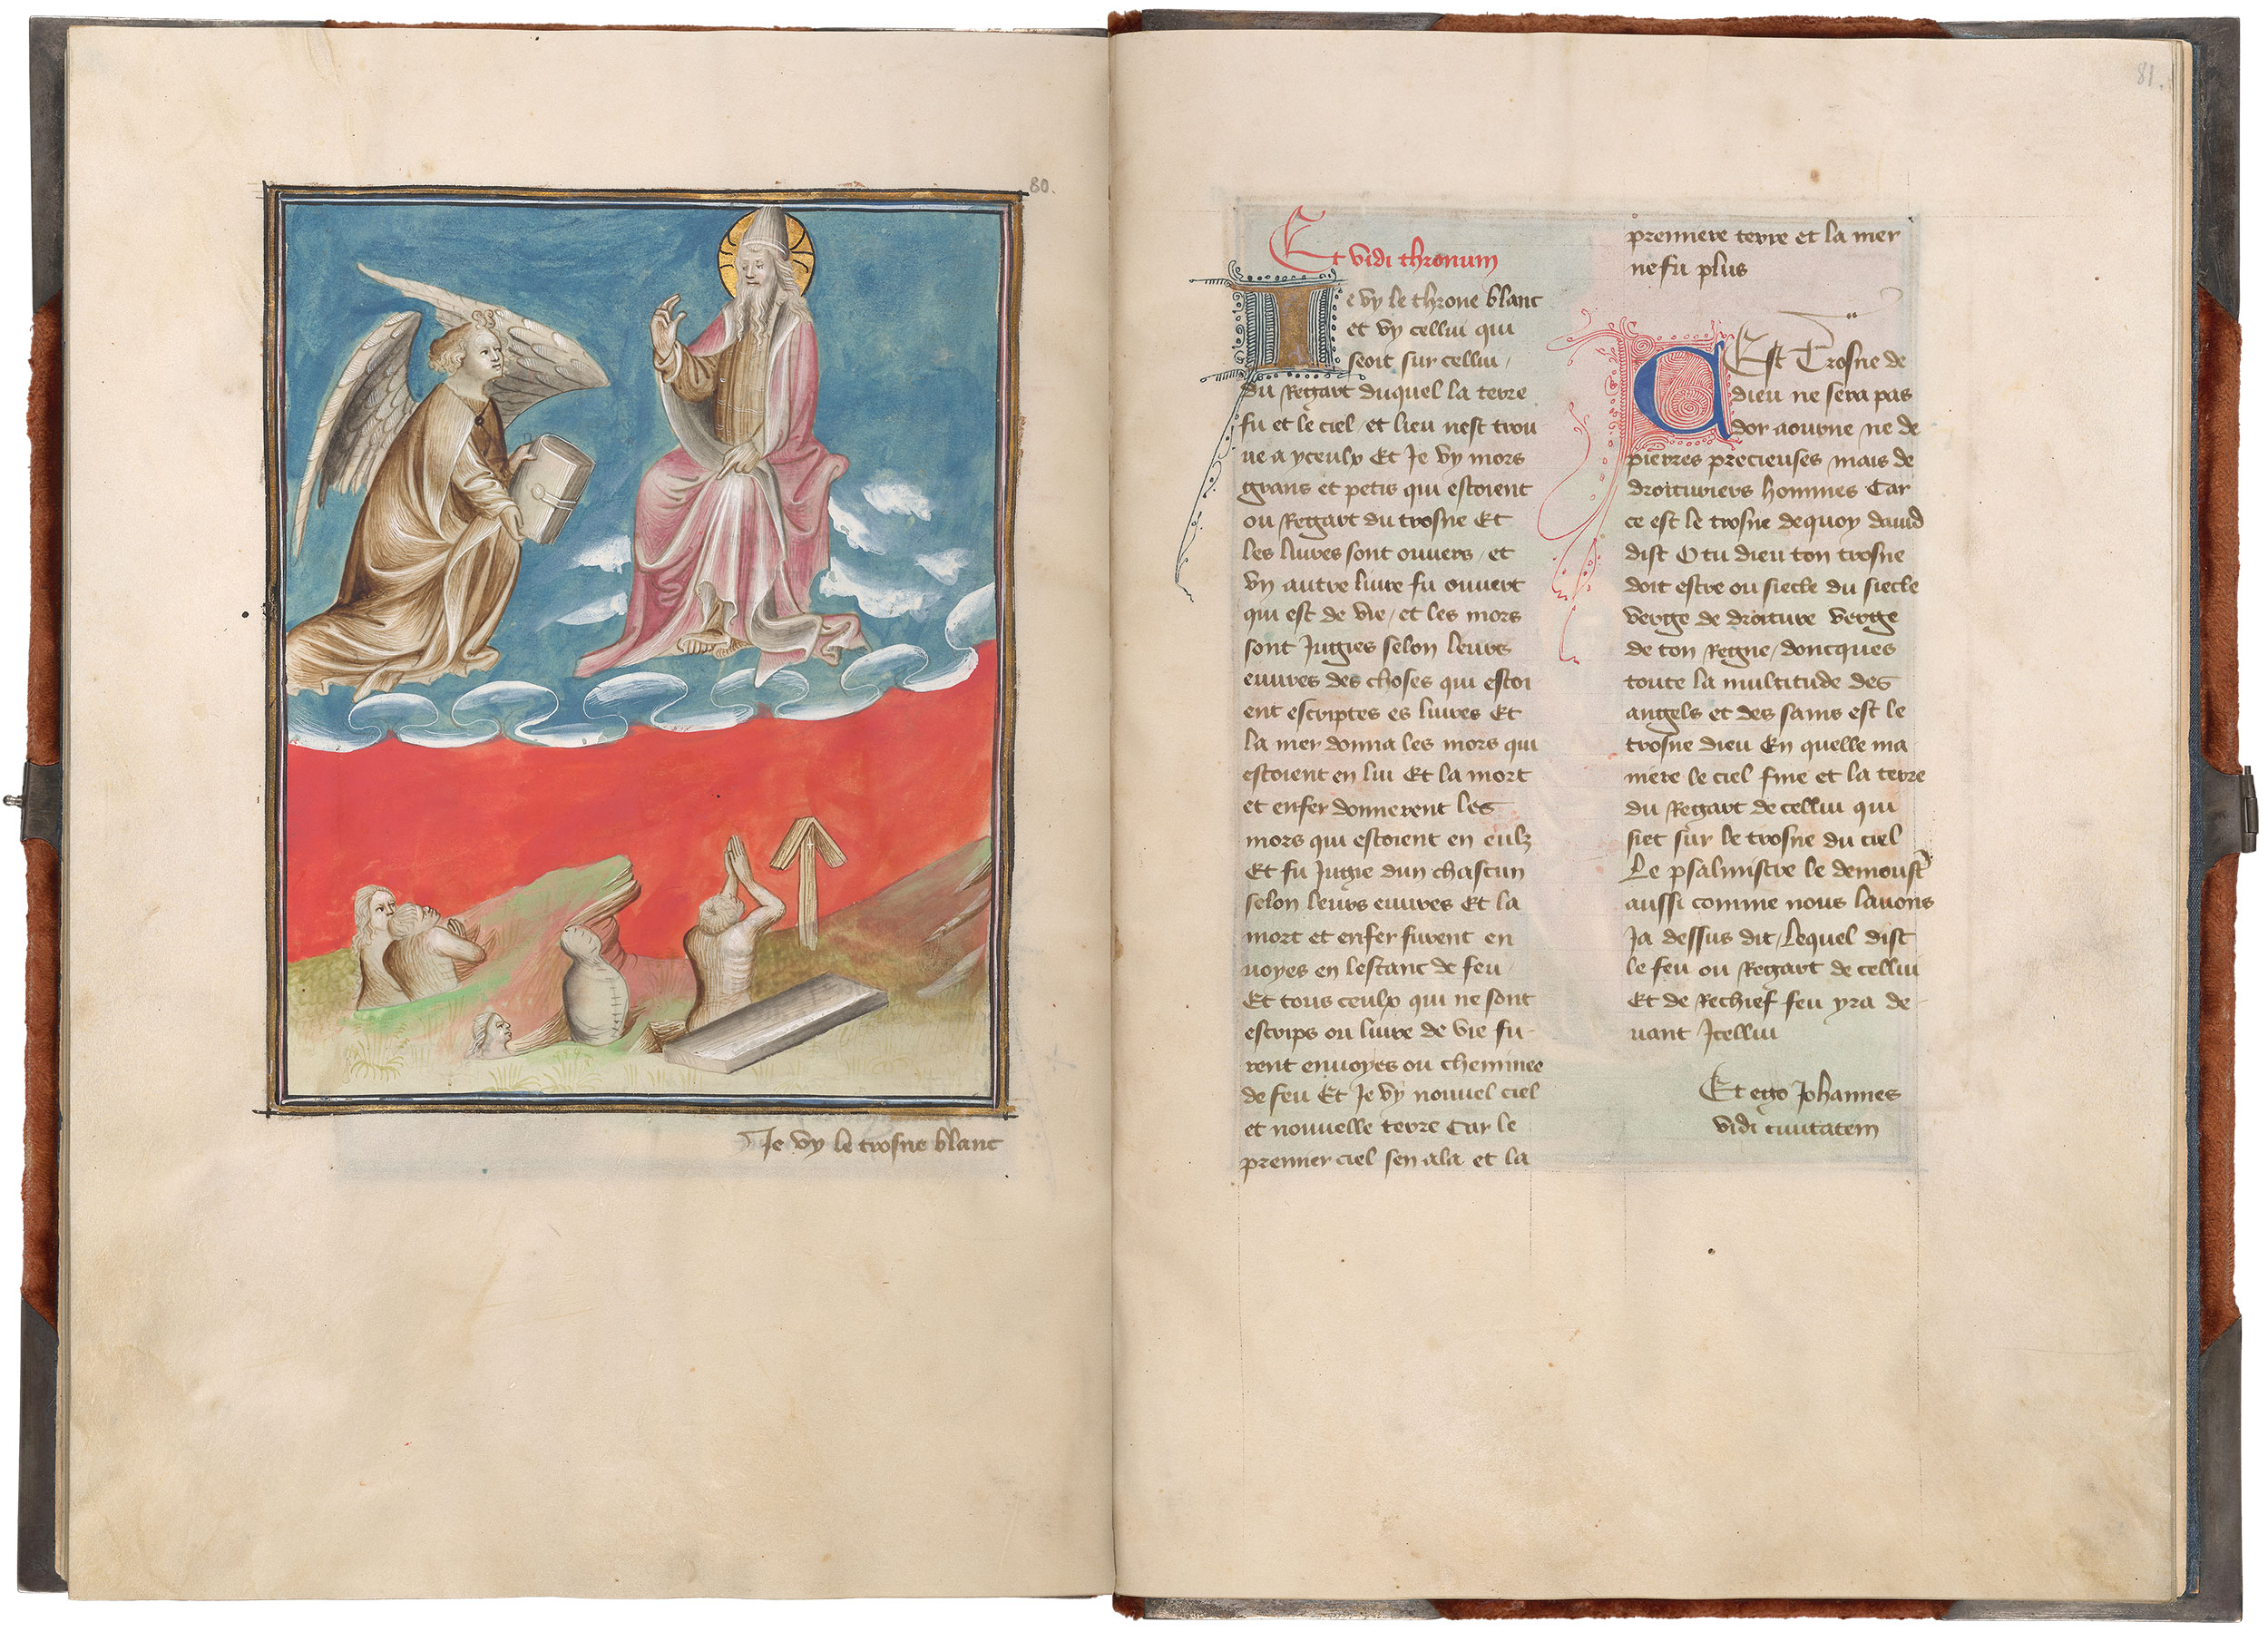 80.
Je vy le trosne blanc
81.
Et vidi thronum
Ie vy le throne blanc
et vy cellui qui
seoit sur cellui /
du Regart duquel la terre
fu et le ciel / et lieu nest trou
ue a yceulx Et Je vy mors
grans et petis qui estoient
ou Regart du trosne Et
les liures sont ouuers / et
vn autre liure fu ouuert
qui est de vie / et les mors
sont Jugies selon leurs
euures des choses qui estoi
ent escriptes es liures Et
la mer donna les mors qui
estoient en lui Et la mort
et enfer donnerent les
mors qui estoient en eulz
Et fu Jugie dun chascun
selon leurs euures Et la
mort et enfer furent en
uoyes en lestanc de feu /
Et tous ceulx qui ne sont
escrips ou liure de vie fu-
rent enuoyes ou cheminee
de feu Et Je vy nouuel ciel
et nouuelle terre Car le
premier ciel sen ala et la
premiere terre et la mer
ne fu plus
CEst Trosne de
dieu ne sera pas
dor aourne / ne de
pierres precieuses / mais de
droituriers hommes Car
ce est le trosne dequoy dauid
dist O tu dieu ton trosne
doit estre ou siecle du siecle
verge de droiture verge
de ton Regne / doncques
toute la multitude des
angels et des sains est le
trosne dieu En quelle ma
niere le ciel fine et la terre
du Regart de cellui qui
siet sur le trosne du ciel
Le psalmistre le demoustre
aussi comme nous lauons
Ja dessus dit / Lequel dist
le feu ou Regart de cellui
Et de Rechief feu yra de-
uant Jcellui
Et ego Johannes
vidi ciuitatem